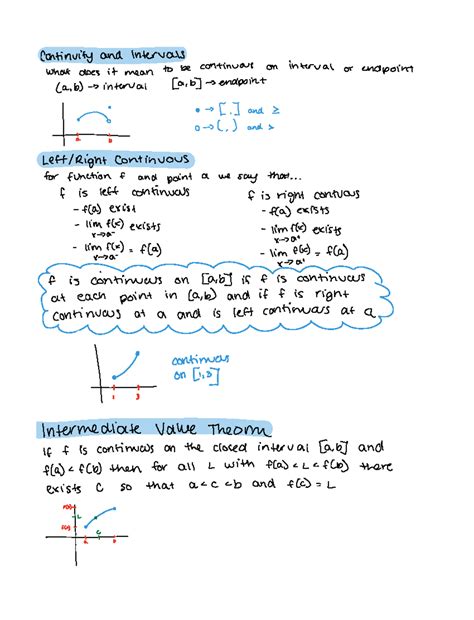 Continuity and Intervals
What does it mean to be continuous on interval or endpoint
(a,b) → interval [a,b] → endpoint
• → [ , ] and ≥
o → ( , ) and >
a b
Left/Right Continuous
for function f and point a we say that...
f is left continuous
- f(a) exist
- lim f(x) exists
x→a⁻
- lim f(x) = f(a)
x→a⁻
f is right contuous
- f(a) exists
- lim f(x) exists
x→a⁺
- lim f(x) = f(a)
x→a⁺
f is continuous on [a,b] if f is continuous
at each point in (a,b) and if f is right
continuous at a and is left continuous at a
continuous
on [1,3]
1 3
Intermediate Value Theorm
If f is continuous on the closed interval [a,b] and
f(a) < f(b) then for all L with f(a) < L < f(b) there
exists C so that a < c < b and f(c) = L
f(b)
L
f(a)
a c b